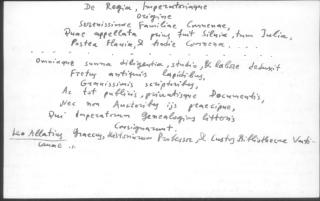 De Regia, Imperatoriaque
Origine
Serenissimae Familiae Comnenae,
Quae appellata prius fuit Silvia, tum Julia,
Postea Flavia, & Andre Comnena . . . .
Omnique summa diligentia, studio, & labore deduxit
Fretus antiquis lapidibus,
Gravissimis scriptoribus,
Ac tot publicis, privatisque Documentis,
Nec non Auctoribus ijs praecipue,
Qui Imperatorum Genealogias litteris
Consignarunt.
Leo Allatius Graecus, Historiarum Professor, & Custos Bibliothecae Vati-
canae ..